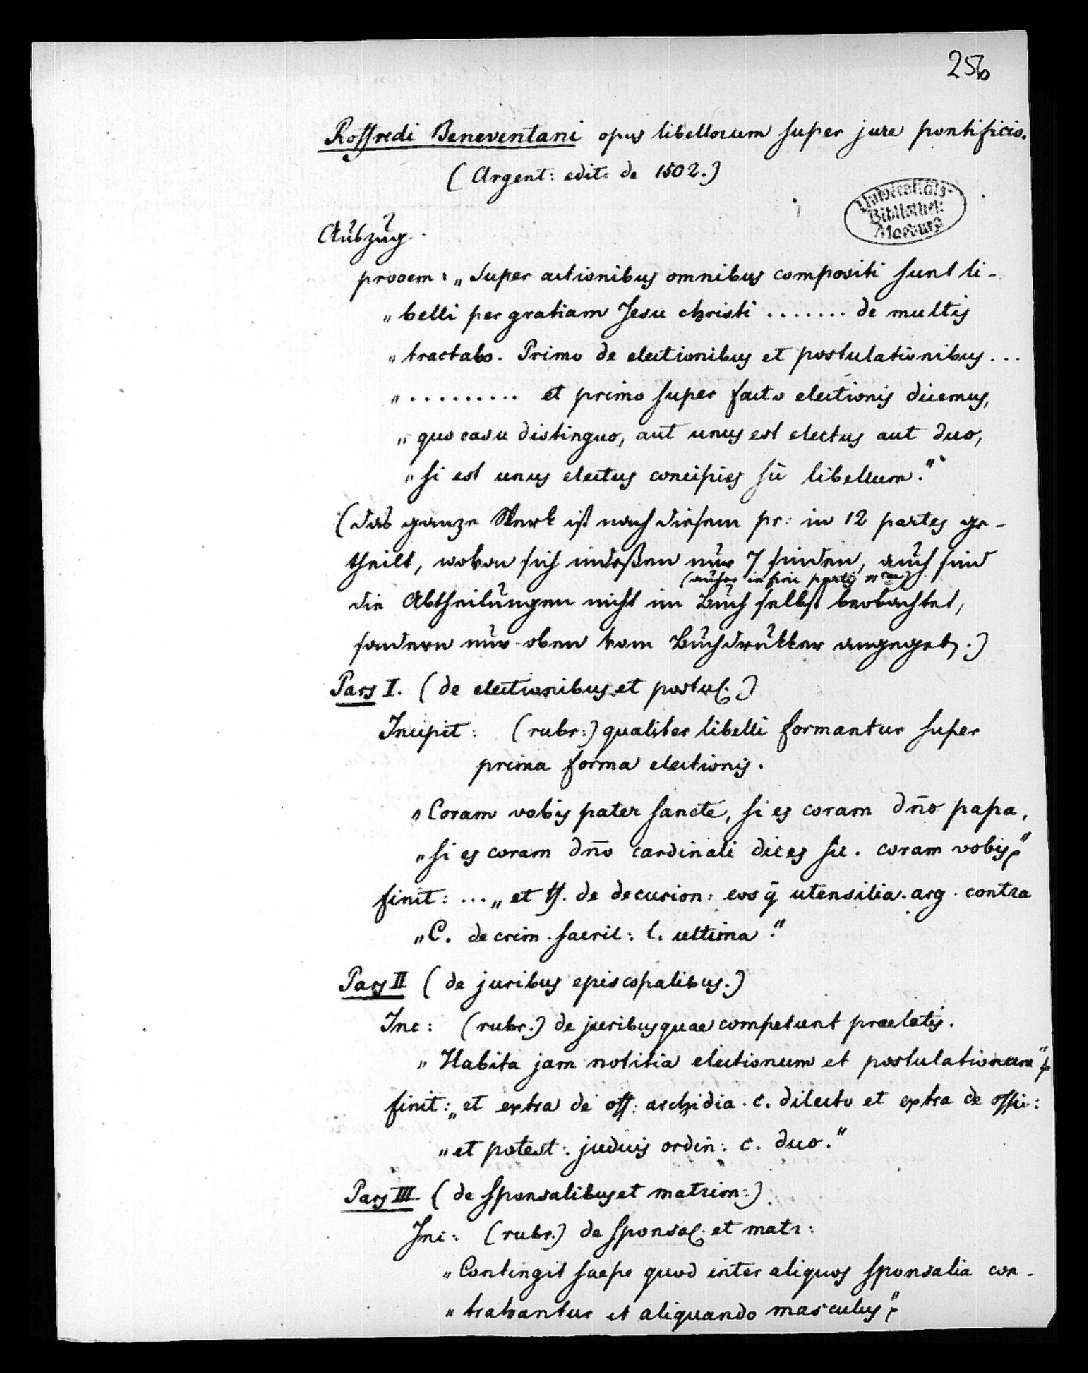 256
Roffredi Beneventani opus libellorum super jure pontificio.
(Argent: edit: de 1502.)
Universitäts-
Bibliothek
Marburg
Auszug.
prooem: „Super actionibus omnibus compositi sunt li-
„belli per gratiam Jesu christi ....... de multis
„tractabo. Primo de electionibus et postulationibus ...
„......... et primo super facto electionis dicemus,
„quo casu distinguo, aut unus est electus aut duo,
„si est unus electus concipies sic̄ libellum."
(das ganze Werk ist nach diesem pr: in 12 partes ge-
theilt, wovon sich indeßen nur 7 finden, auch sind
(außer in fine partis
die Abtheilungen nicht im Buch selbst beobachtet,
sondern nur oben vom Buchdrukker angegeb.)
Pars I. (de electionibus et postul.)
Incipit: (rubr:) qualiter libelli formantur super
prima forma electionis.
„Coram vobis pater sancte, si es coram dn̄o papa,
„si es coram dn̄o cardinali dices sic. coram vobis"
finit: ... „et ff. de decurion: eos q̄ utensilia. arg. contra
„C. de crim. sacril: l. ultima."
Pars II (de juribus episcopalibus.)
Inc: (rubr.) de juribus quae competunt praelatis.
„Habita jam notitia electionum et postulationum"
finit: „et extra de off: archidia. c. dilecto et extra de offic:
„et potest: judicis ordin: c. duo."
Pars III. (de sponsalibus et matrim:)
Inc: (rubr.) de sponsal. et matr:
„Contingit saepe quod inter aliquos sponsalia con-
„trahantur et aliquando masculus"